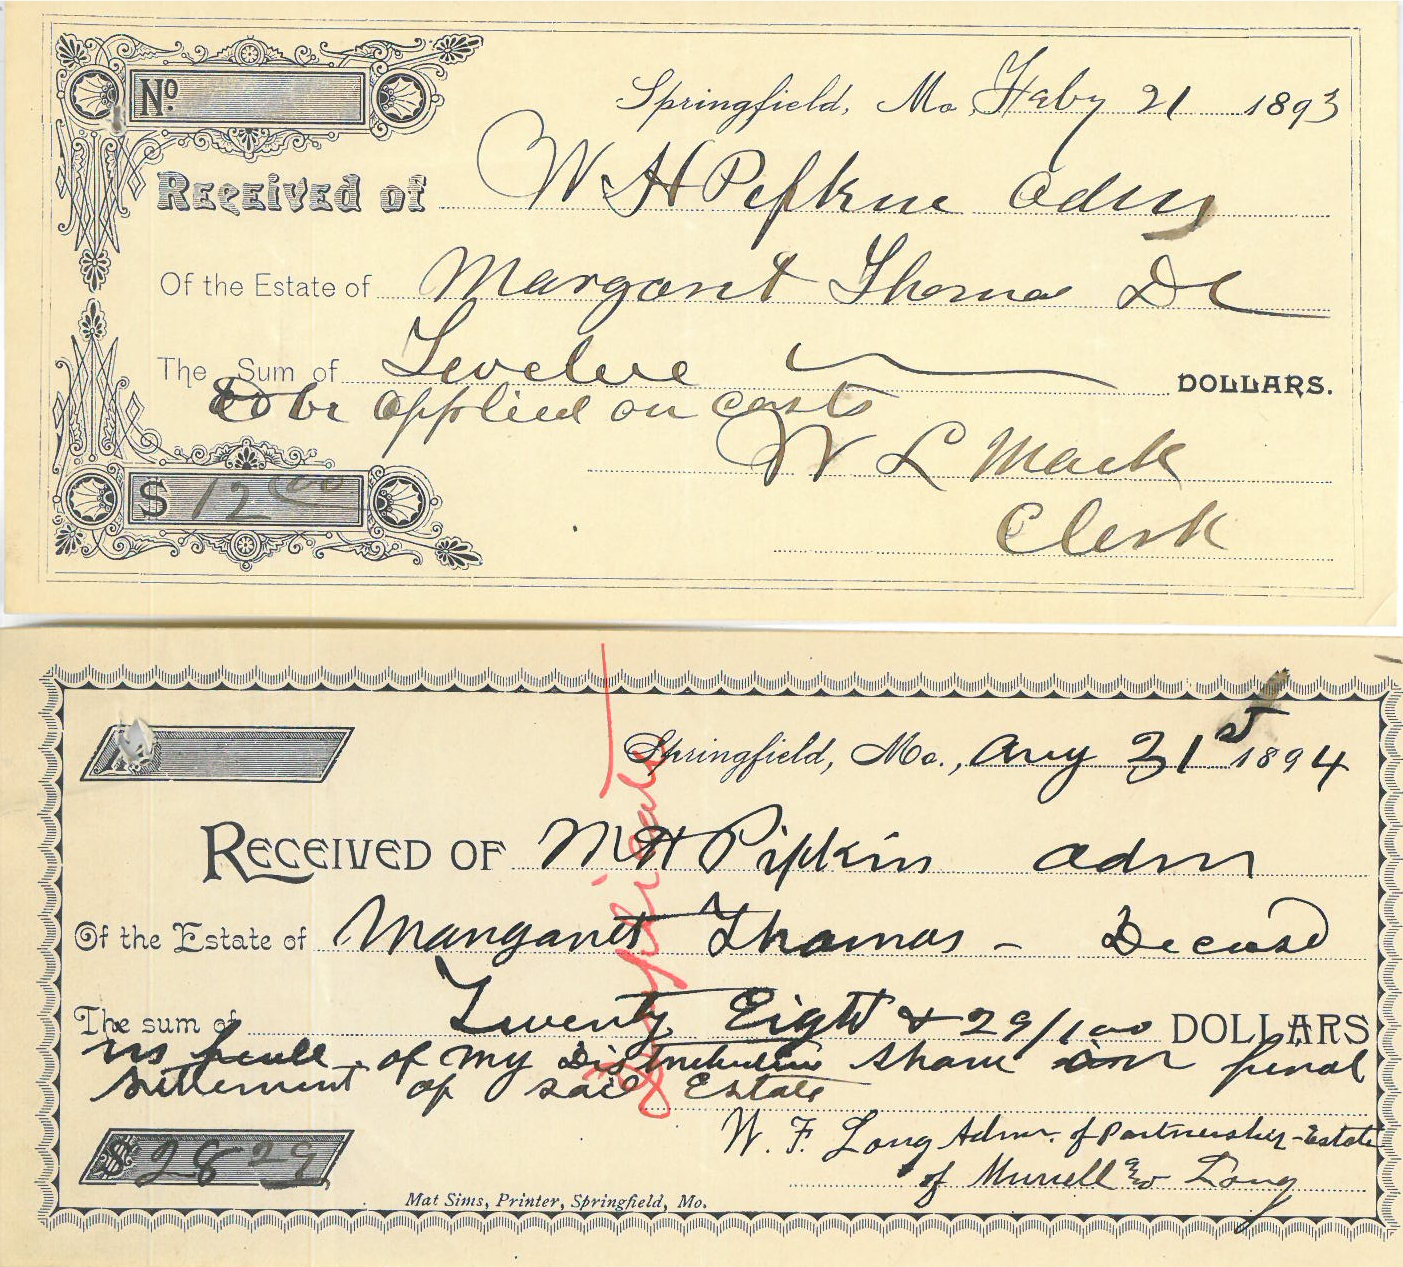 No.
Springfield, Mo Feby 21 1893
Received of W H Pipkin adm
Of the Estate of Margaret Thomas De
The Sum of Twelve DOLLARS.
to be applied on costs
W L Mack
$ 12.00 Clerk
Springfield, Mo., Aug 31st 1894
RECEIVED OF M H Pipkin adm
Of the Estate of Margaret Thomas - Deceasd
The sum of Twenty Eight & 29/100 DOLLARS
in full of my Distributive share in final
settlement of said Estate
Duplicate
W. F. Long Admr. of Partnership-Estate
$28 29 of Murrell & Long
Mat Sims, Printer, Springfield, Mo.